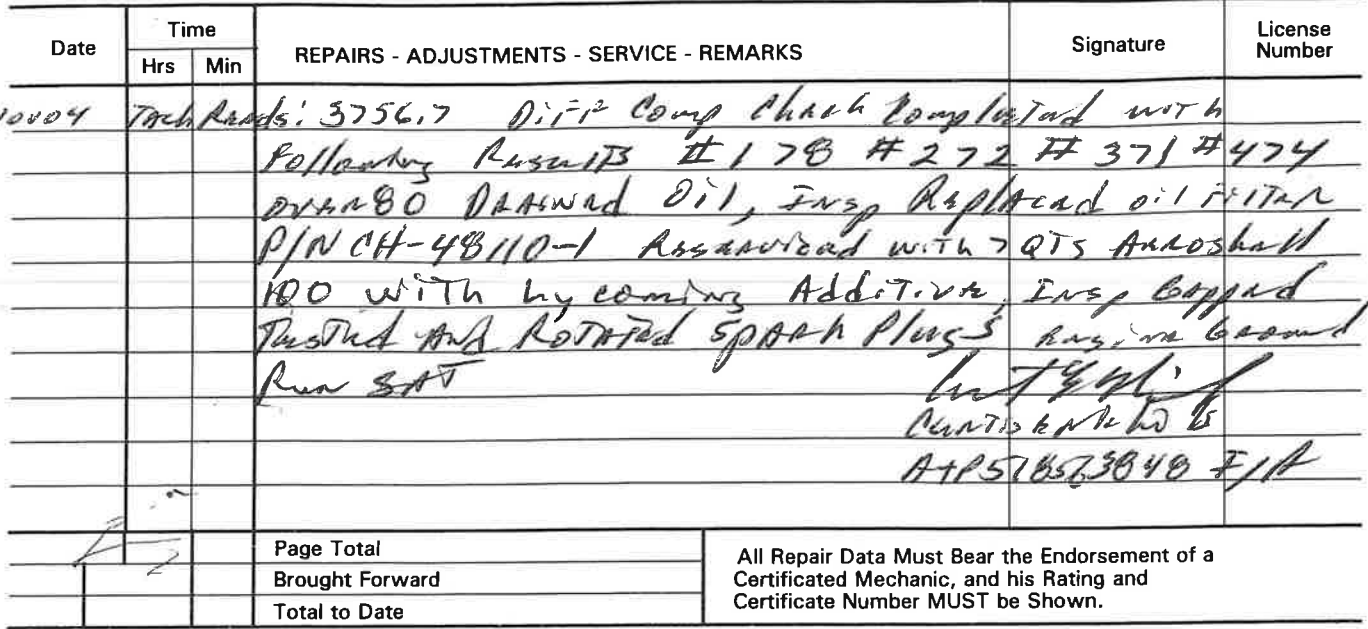 Date Time REPAIRS - ADJUSTMENTS - SERVICE - REMARKS Signature License Number
Hrs Min
Tach Reads: 3756.7 Diff Comp Check Completed with
Following Results #1 78 #2 72 #3 71 #4 74
over 80 Drained Oil, Insp Replaced oil Filter
P/N CH-48110-1 Reserviced with 7 QTS Aeroshell
100 with Lycoming Additive, Insp Gapped
Tested And Rotated Spark Plugs Engine Ground
Run SAT
Curtis
A+P 578563848 I/A
Page Total
Brought Forward
Total to Date
All Repair Data Must Bear the Endorsement of a
Certificated Mechanic, and his Rating and
Certificate Number MUST be Shown.